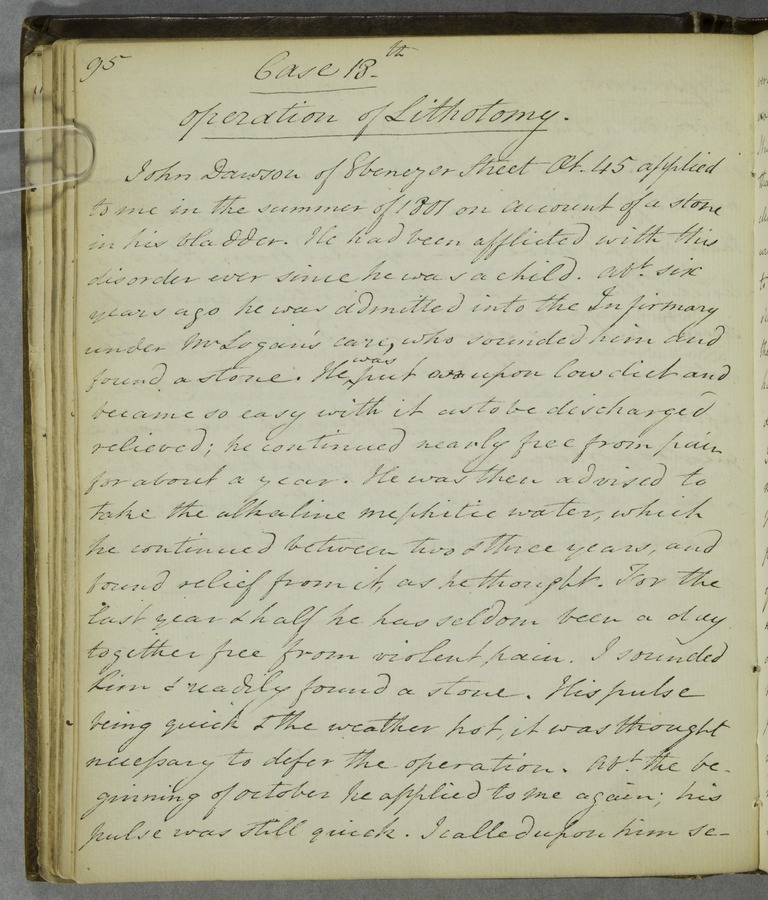 95
Case 13.th
operation of Lithotomy.
John Dawson of Ebenezer Street Æt. 45 applied
to me in the summer of 1801 on account of a stone
in his bladder. He had been afflicted with this
disorder ever since he was a child. abt. six
years ago he was admitted into the Infirmary
under Mr Logan's care, who sounded him and
found a stone. He was put upon low diet and
became so easy with it as to be discharged
relieved; he continued nearly free from pain
for about a year. He was then advised to
take the alkaline mephitic water, which
he continued between two & three years, and
found relief from it, as he thought. For the
last year & half he has seldom been a day
together free from violent pain. I sounded
him & readily found a stone. His pulse
being quick & the weather hot, it was thought
necessary to defer the operation. abt. the be-
ginning of october he applied to me again; his
pulse was still quick. I called upon him se-